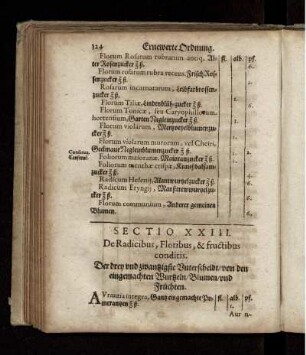 124 Ernewerte Ordnung.
Florum Rosarum rubrarum antiq. Al- fl. alb. pf.
ter Rosenzucker ʒ ß.
Florum rosarum rubra recens. Frisch Ros-
senzucker ʒ ß.
Rosarum incarnatarum, Leibfarbrosen-
zucker ʒ ß.
Florum Tiliæ, Lindenblüh-zucker ʒ ß.
Florum Tunicæ, seu Caryophillorum
hortensium, Garten Neglenzucker ʒ ß.
Florum violarum, Mertzveyelblumenzu-
cker ʒ ß.
Florum violarum murarum, vel Cheiri,
Foliorum maioranæ, Maioranzucker ʒ ß.
Foliorum menthæ crispæ, Kraußbalsam-
zucker ʒ ß.
Radicum Helenij, Alantwurtzelzucker ʒ ß.
Radicum Eryngij, Manstrewwurtzelzu-
cker ʒ ß.
Florum communium, Anderer gemeinen
Blumen.
SECTIO XXIII.
De Radicibus, Floribus, & fructibus
conditis.
Der drey vnd zwantzigste Vnterscheidt, von den
eingemachten Wurtzeln, Blumen, vnd
Früchten.
AVrantia integra, Gantz eingemachte Po- fl. alb. pf.
merantzen ʒ ß.
Aur n-